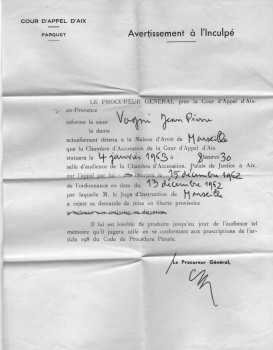 COUR D'APPEL D'AIX
PARQUET
Avertissement à l'Inculpé
LE PROCUREUR GÉNÉRAL près la Cour d'Appel d'Aix-
en-Provence
informe le sieur Vogni Jean Pierre
la dame
actuellement détenu à la Maison d'Arrêt de Marseille
que la Chambre d'Accusation de la Cour d'Appel d'Aix
statuera le 4 janvier 1963 à 8 heures 30
salle d'audience de la Chambre d'Accusation, Palais de Justice à Aix,
sur l'appel par lui 15 décembre 1962
de l'ordonnance en date du 13 décembre 1962
par laquelle M. le Juge d'Instruction de Marseille
a rejeté sa demande de mise en liberté provisoire
Il lui est loisible de produire jusqu'au jour de l'audience tel
mémoire qu'il jugera utile en se conformant aux prescriptions de l'ar-
ticle 198 du Code de Procédure Pénale.
Le Procureur Général,